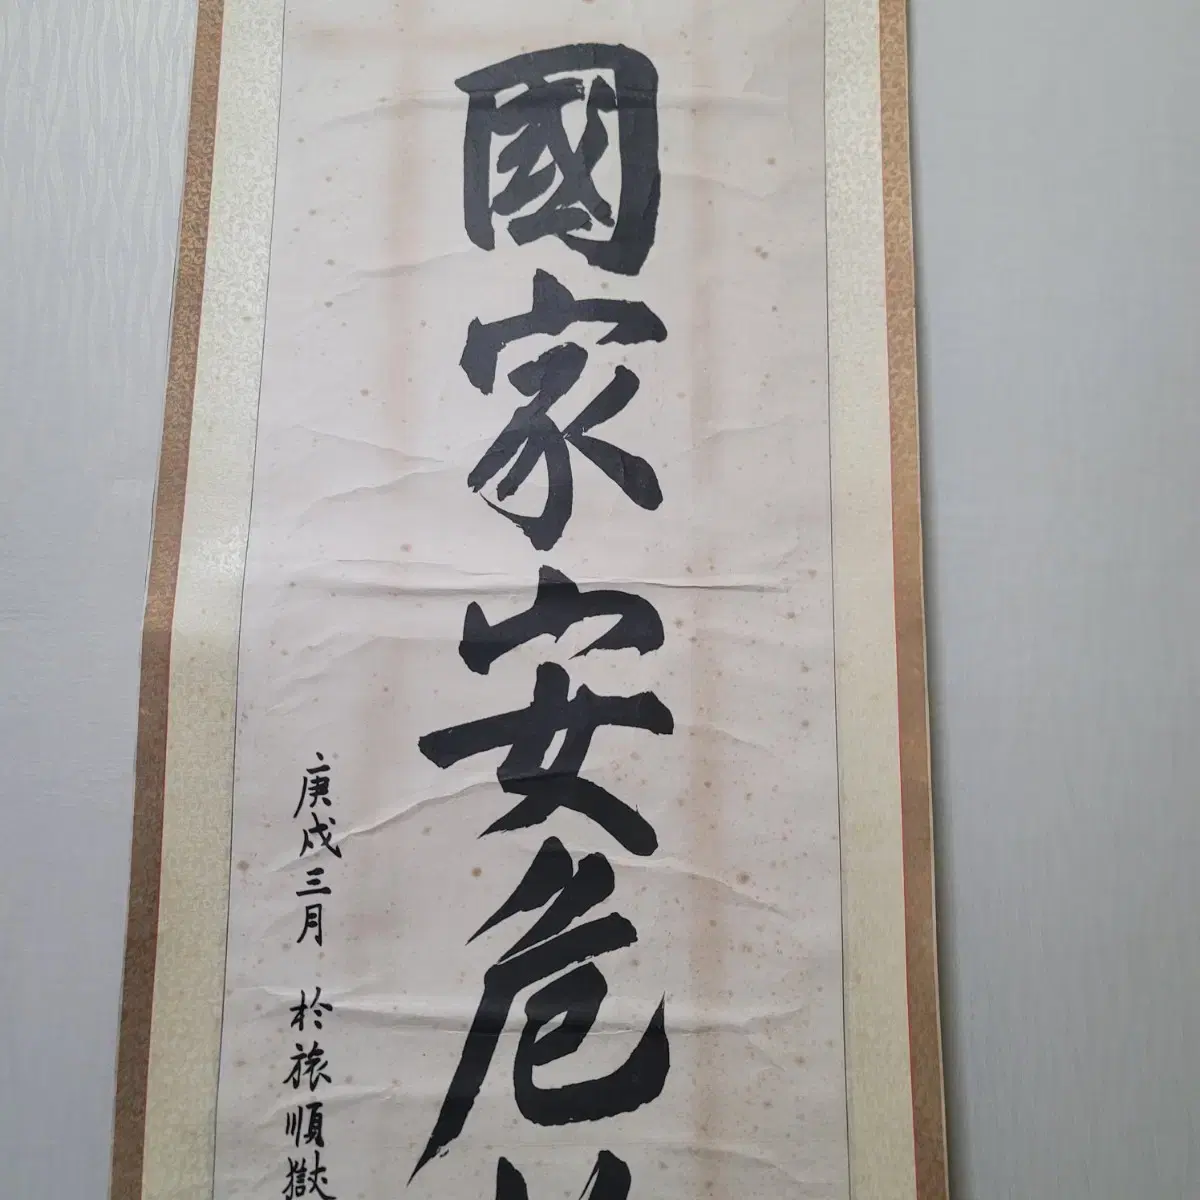 國家安危
庚戌三月 於旅順獄